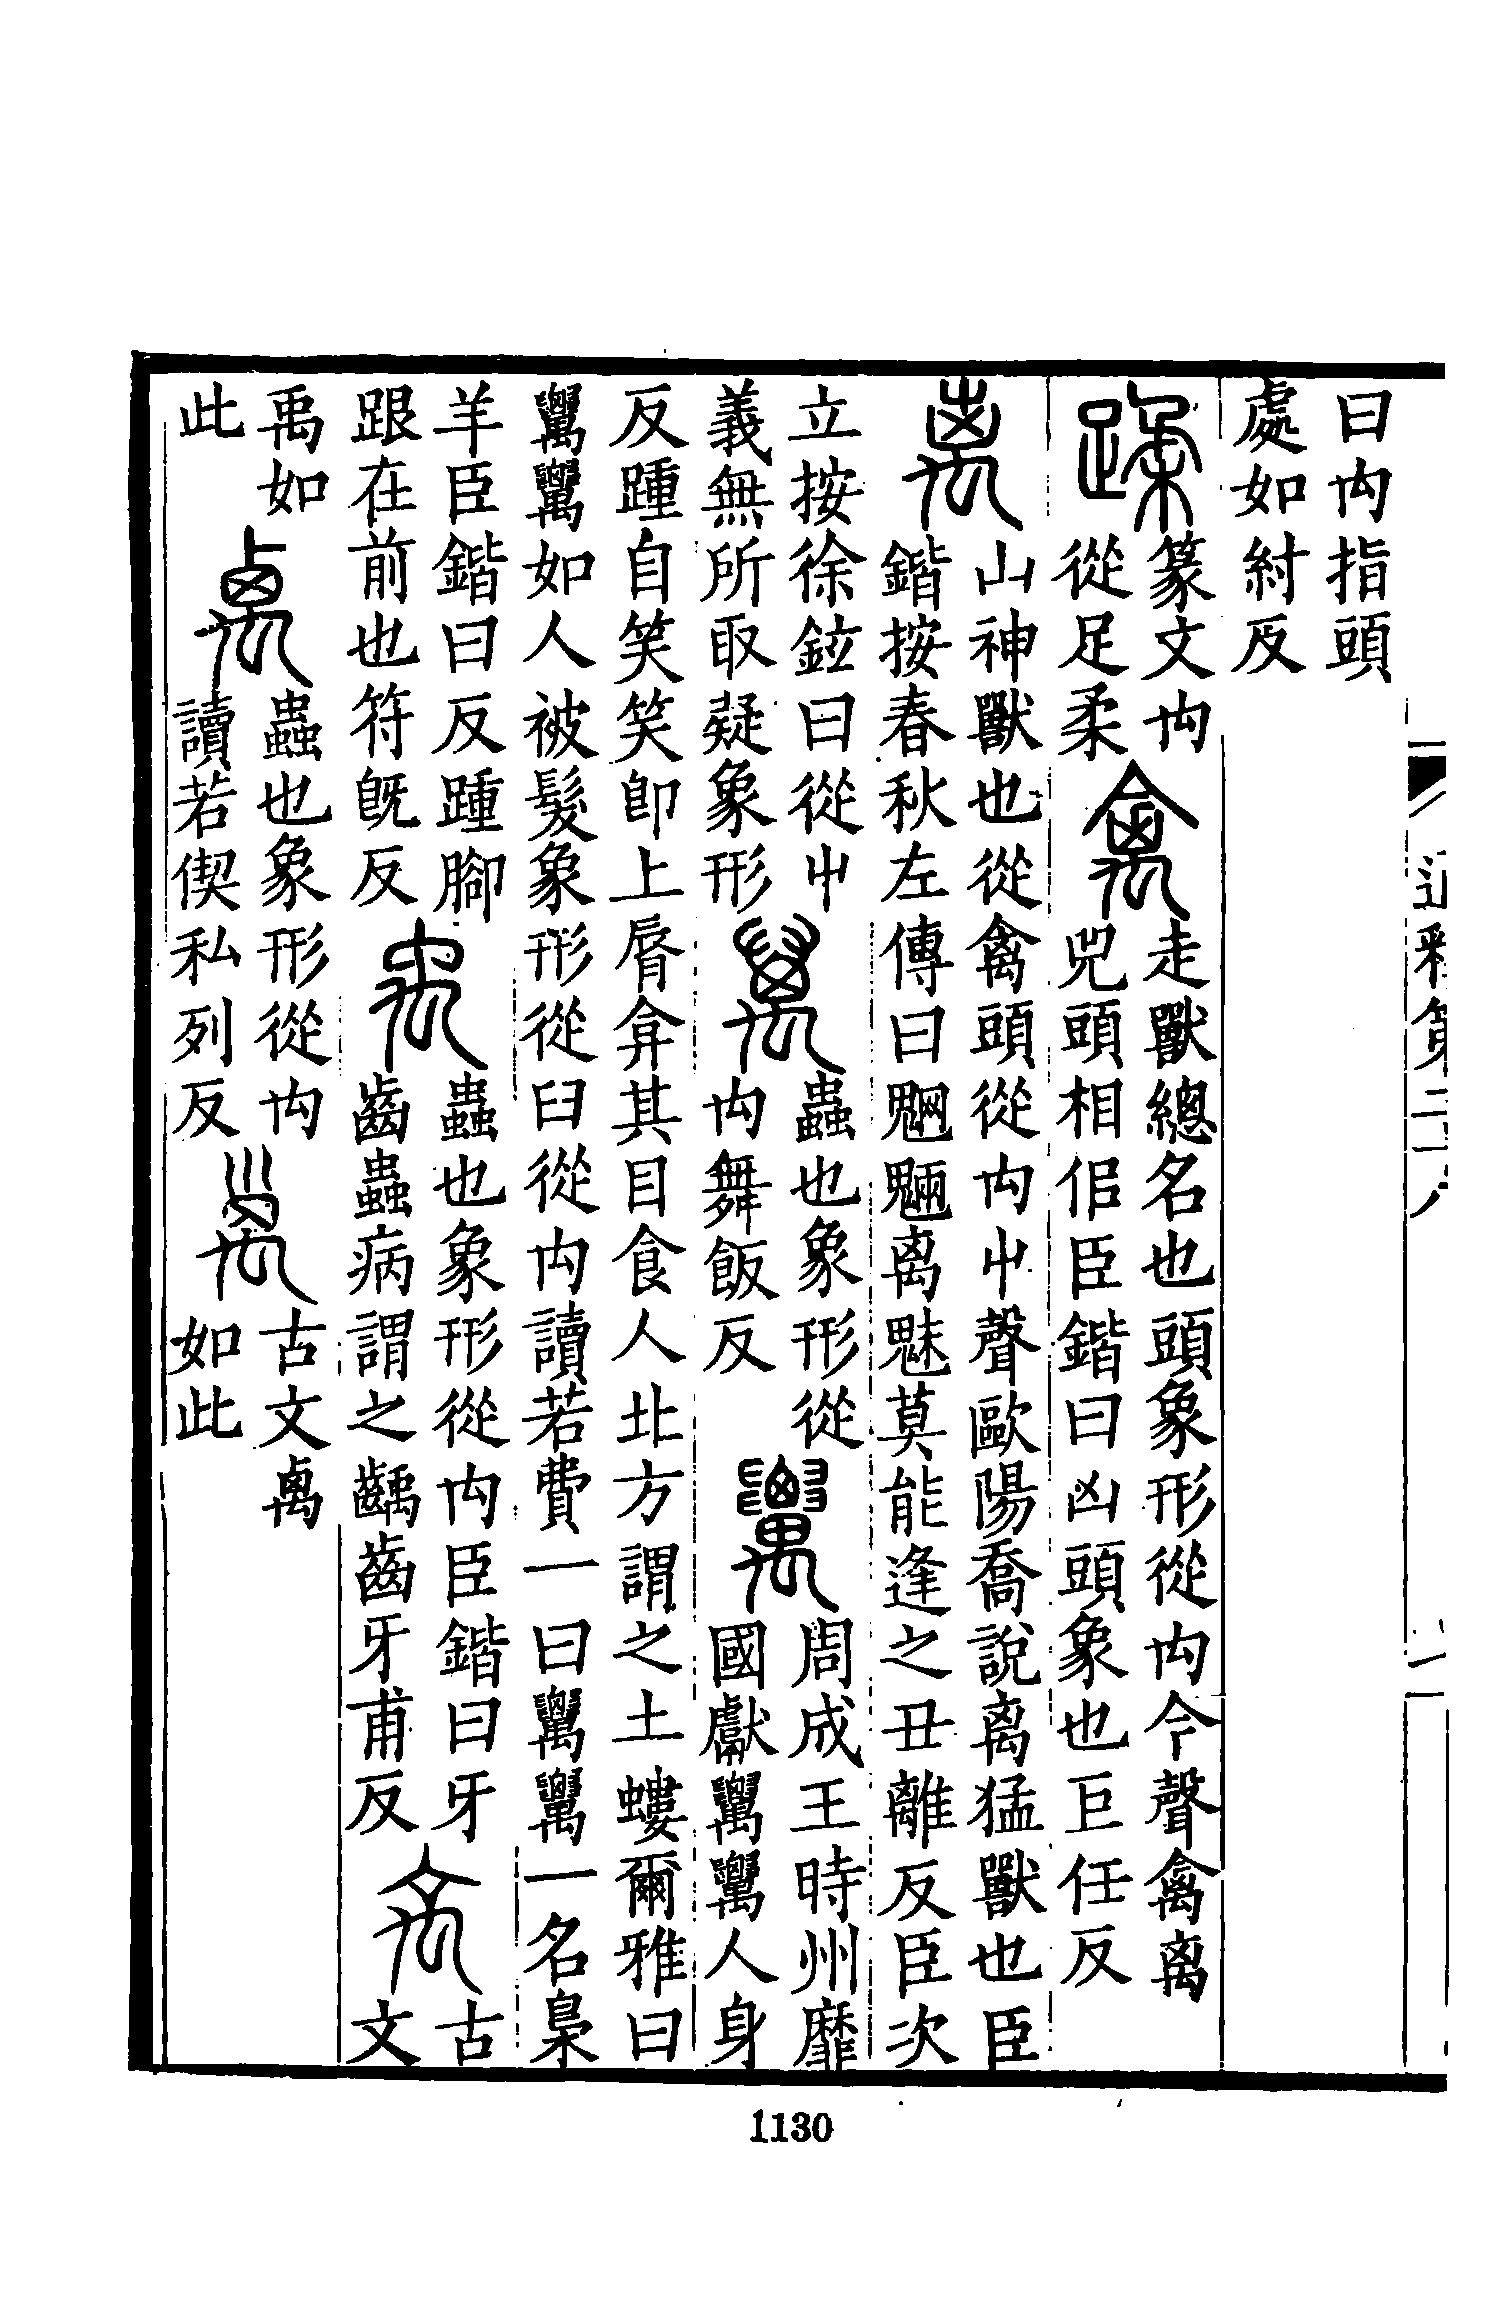 曰禸指頭
處如紂反
蹂
篆文禸
從足柔
禽
走獸總名也頭象形從禸今聲禽离
兕頭相佀臣鍇曰凶頭象也巨任反
离
山神獸也從禽頭從禸屮聲歐陽喬說离猛獸也臣
鍇按春秋左傳曰魍魎离魅莫能逢之丑離反臣次
立按徐鉉曰從屮
義無所取疑象形
萬
蟲也象形從
禸舞飯反
𥝌
周成王時州靡
國獻𥝌𥝌人身
反踵自笑笑即上脣弇其目食人北方謂之土螻爾雅曰
𥝌𥝌如人被髮象形從臼從禸讀若費一曰𥝌𥝌一名梟
羊臣鍇曰反踵腳
跟在前也符旣反
禹
蟲也象形從禸臣鍇曰牙
齒蟲病謂之齲齒牙甫反
古
文
禹如
此
卨
蟲也象形從禸
讀若偰私列反
古文卨
如此
通釋第二十八
1130